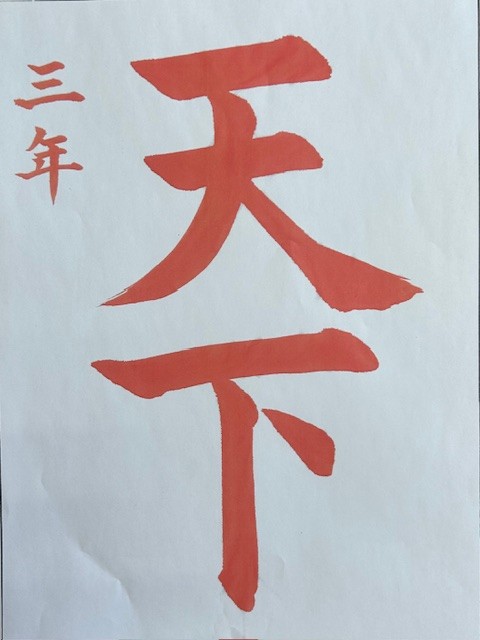 天下
三年